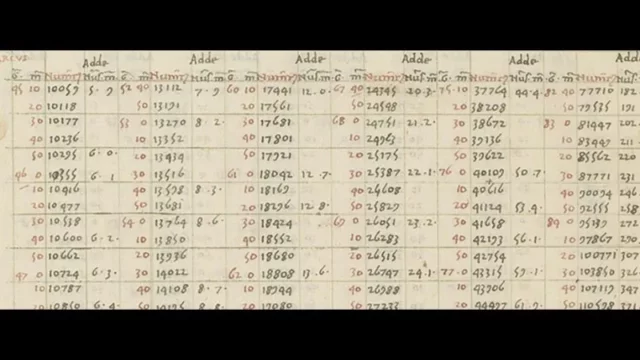 Adde Adde Adde Adde
G m Numeri Nũs m G m Numeri Nũs m G m Numeri Nũs m G m Numeri Nũs m G m Numeri Nũs m G m Numeri Nũs
45 10 10059 5·9 52 40 13112 7·9 60 10 17441 12·0· 67 40 24345 20·3· 75·10 37764 44·4· 82 40 77710 182
20 10118 50 13191 20 17561 50 24548 20 38208 50 79535 191
30 10177 53 0 13270 8·2· 30 17681 68 0 24751 21·2· 30 38672 83 0 81447 202
40 10236 10 13352 40 17801 10 24963 40 39136 10 83449 211
50 10295 6·0· 20 13434 50 17921 20 25175 50 39622 20 85562 220
46 0 10355 6·1 30 13516 61 0 18042 12·7· 30 25387 22·1·76 0 40109 50·7· 30 87771 231
10 10416 40 13598 8·3· 10 18169 40 25608 10 40616 40 90094 246
20 10477 50 13681 20 18296 12·8· 50 25829 20 41124 53·4· 50 92555 258
30 10538 54 0 13764 8·6· 30 18424 69 0 26051 23·2· 30 41658 84 0 95139 272
40 10600 6·2· 10 13850 40 18552 10 26283 40 42193 56·1· 10 97867 290
50 10662 20 13936 50 18680 20 26515 50 42754 20 100771 307
47 0 10724 6·3· 30 14022 62 0 18808 13·6· 30 26747 24·1·77·0 43315 59·1· 30 103850 326
10 10787 40 14108 8·7· 10 18944 40 26988 10 43906 40 107119 347
20 10850 6·4· 50 14195 8·8· 20 19080 50 27233 20 44497 61·9· 50 110598 371